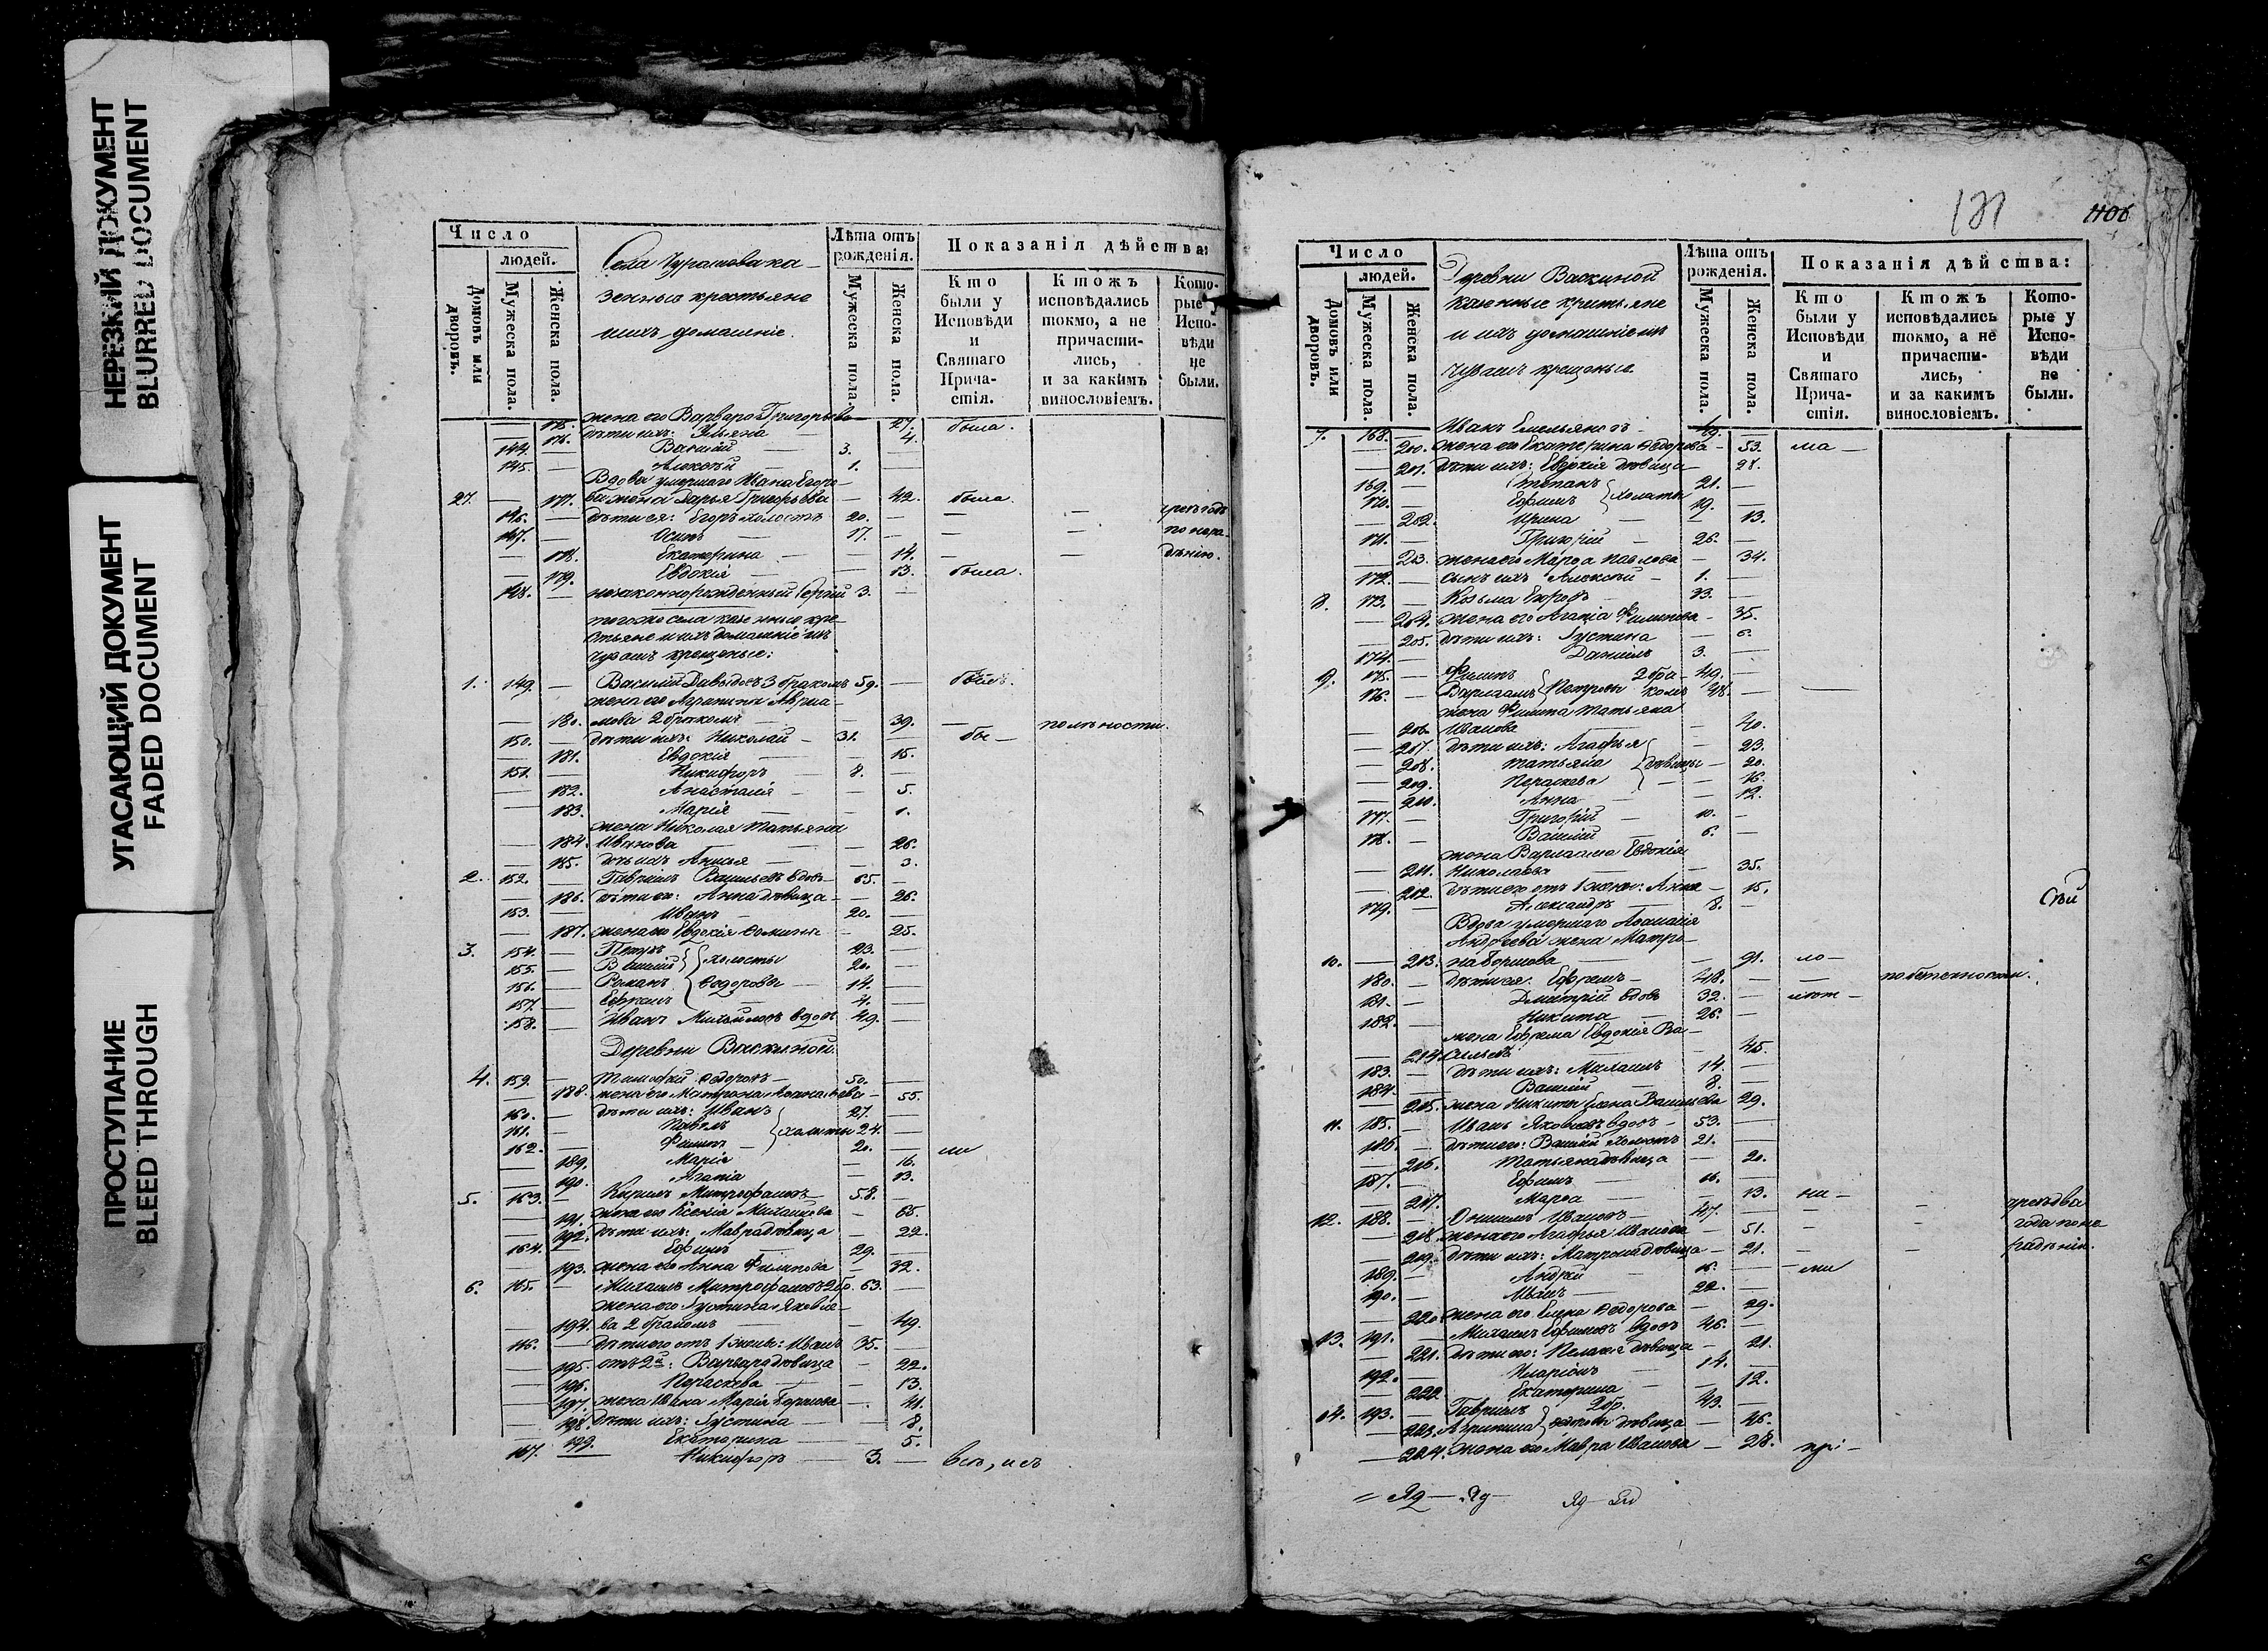 НЕРЕЗКИЙ ДОКУМЕНТ
BLURRED DOCUMENT
УГАСАЮЩИЙ ДОКУМЕНТ
FADED DOCUMENT
ПРОСТУПАНИЕ
BLEED THROUGH
Число
людей.
Домовъ или дворовъ.
Мужеска пола.
Женска пола.
Села Чурашова ка-
зенные крестьяне
ихъ домашніе.
Лѣта отъ рожденія.
Мужеска пола.
Женска пола.
Показанія дѣйства:
Кто были у Исповѣди и Святаго Прича-стія.
Ктожъ исповѣдались токмо, а не причасти-лись, и за какимъ винословіемъ.
Кото-рые у Испо-вѣди не были.
175. жена его Варвара Григорьева 27. была.
176. дѣти ихъ: Ульяна 4.
144. Василій 3.
145. Алексѣй 1.
Вдова умершаго Ивана Егоро-
27. 177. ва жена Дарья Григорьева 42. была.
146. дѣти ея: Егоръ холостъ 20.
147. Осипъ 17. по нера-
178. Екатерина 14. дѣнію.
179. Евдокія 13. была.
148. незаконнорожденный Сергій 3.
тогоже села казенные кре-
стьяне и ихъ домашніе изъ
Чувашъ крещеные:
1. 149. Василій Давыдовъ 3 бракомъ 59. былъ.
жена его Агрипина Авраа-
180. мова 2 бракомъ 39.
150. дѣти ихъ: Николай 31. бы-
181. Евдокія 15.
151. Никифоръ 8.
182. Анастасія 5.
183. Марія 1.
жена Николая Татьяна
184. Иванова 26.
185. дочь ихъ 3.
2. 152. Гавріилъ Васильевъ вдовъ 65.
186. дѣти его: Анна дѣвица 26.
153. Иванъ 20.
187. жена его Евдокія Ѳомина 25.
3. 154. Петръ 23.
155. Василій холосты 20.
156. Романъ Ѳедоровы 14.
157. Ефремъ 4.
158. Иванъ Михайловъ вдовъ 49.
Деревни Васкиной.
4. 159. Тимофей Ѳедоровъ 50.
188. жена его Матрона Аѳанасьева 55.
160. дѣти ихъ: Иванъ 27.
161. Павелъ холосты 24.
162. Филипъ 20. ли
189. Марія 16.
190. Агапія 13.
5. 163. Кирилъ Митрофановъ 58.
191. жена его Ксенія Михайлова 65.
192. дѣти ихъ: Мавра дѣвица 22.
164. Ефимъ 29.
193. жена его Анна Филипова 32.
6. 165. Михаилъ Митрофановъ 2 бр. 63.
жена его Густина Яковле-
194. ва 2 бракомъ 49.
166. дѣти его отъ 1 жены: Иванъ 35.
195. отъ 2й: Варвара дѣвица 22.
196. Пераскева 13.
197. жена Ивана Марія 41.
198. дѣти ихъ: Густина 8.
199. Екатерина 5.
167. Никифоръ 3. Всѣ, исъ
131
406
Число
людей.
Домовъ или дворовъ.
Мужеска пола.
Женска пола.
Деревни Васкиной
казенные крестьяне
и ихъ домашніе изъ
Чувашъ крещеные.
Лѣта отъ рожденія.
Мужеска пола.
Женска пола.
Показанія дѣйства:
Кто были у Исповѣди и Святаго Прича-стія.
Ктожъ исповѣдались токмо, а не причасти-лись, и за какимъ винословіемъ.
Кото-рые у Испо-вѣди не были.
7. 168. Иванъ Емельяновъ 49.
200. жена его Екатерина Ѳедорова 53.
201. дѣти ихъ: Евдокія дѣвица 28.
169. Степанъ 21.
170. Ефимъ холосты 19.
202. Ирина 13.
171. Григорій 26.
203. жена его Марѳа Павлова 34.
172. сынъ ихъ Алексѣй 1.
8. 173. Козьма Егоровъ 33.
204. жена его Агапія Филипова 35.
205. дѣти ихъ: Густина 6.
174. Даніилъ 3.
9. 175. Филипъ 2 бра- 49.
176. Варлаамъ Петровы комъ 48.
жена Филипа Татьяна
206. Иванова 40.
207. дѣти ихъ: Агафья 23.
208. Татьяна дѣвицы 20.
209. Пераскева 16.
210. Анна 12.
177. Григорій 10.
178. Василій 6.
жена Варлаама Евдокія
211. Николаева 35.
212. дѣти его отъ 1 жены: Анна 15.
179. Александръ 8.
Вдова умершаго Аѳанасія
Андреева жена Матро-
10. 213. на 91. ло-
180. дѣти ея: Ефремъ 48.
181. Дмитрій вдовъ 32.
182. Никита 26.
жена Ефрема Евдокія Ва-
214. сильева 45.
183. дѣти ихъ: Михаилъ 14.
184. Василій 8.
215. жена Никиты Елена Васильева 29.
11. 185. Иванъ Яковлевъ вдовъ 53.
186. дѣти его: Василій холостъ 21.
216. Татьяна дѣвица 20.
187. Ефимъ 16.
217. Марѳа 13. ни-
12. 188. Онисимъ Ивановъ 47. чрезъ два
218. жена его Агафья Иванова 51. года по не
219. дѣти ихъ: Матрона дѣвица 21. радѣнію.
189. Андрей 16. ми
190. Иванъ 22.
220. жена его Елена Ѳедорова 29.
13. 191. Михаилъ Ефимовъ вдовъ 46.
221. дѣти его: Пелагія дѣвица 21.
192. Иларіонъ 14.
222. Екатерина 12.
14. 193. Гавріилъ 2 бр. 43.
223. Агрипина дѣвица 46.
224. жена его Мавра Иванова 28. прі-